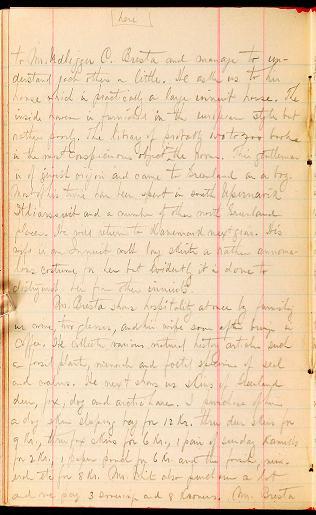 [here]
to Mr. C. Bresta and manage to un-
derstand each others a little. He asks us to his
house which is practically a large innuit house. The
inside however is furnished in the european style but
rather poorly. The library of probably 100 to 200 books
is the most conspicuous object in the room. This gentleman
is of origin and came to Greenland as a boy.
Most of his time has been spent in south Upernavik
and a number of other north Greenland
places. He will return to Danemark next year. His
wife is an Innuit with long skirts a rather anoma-
lous costume for her but evidently it is done to
distinguish her from other innuits.
Mr. Bresta shows hospitality at once by
us wine, two glasses, and his wife soon after brings in
coffee. He collects various natural history articles such
as fossil plants, and foetal specimens of seal
and walrus. He next shows us skins of Greenland
deer, fox, dog and arctic hare. I purchase of him
a dog skin sleeping bag for 12 Kr. three deer skins for
9 Kr, three fox skins for 6 Kr, 1 pair of sunday Kamiks
for 2 Kr, 1 paper pouch for 6 Kr and the
for 8 Kr. Mr. also purchases a lot
and we pay 3 sovereigns and 8 Kroners. Mr. Bresta